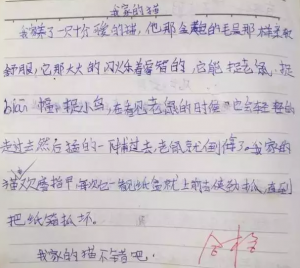 我家的猫
我养了一只十分强的猫，他那金黄的毛是那样柔软
舒服，它那大大的闪烁着智的，它能捉老鼠、捉
biān蝠、捉小鸟，去看见老鼠的时候它会轻轻的
走过去然后猛的一扑过去，老鼠就倒停了。我家的
猫欢磨指甲，每次它一看见纸盒就上前去使劲抓，直到
把纸箱抓坏。
我家的猫不错吧。